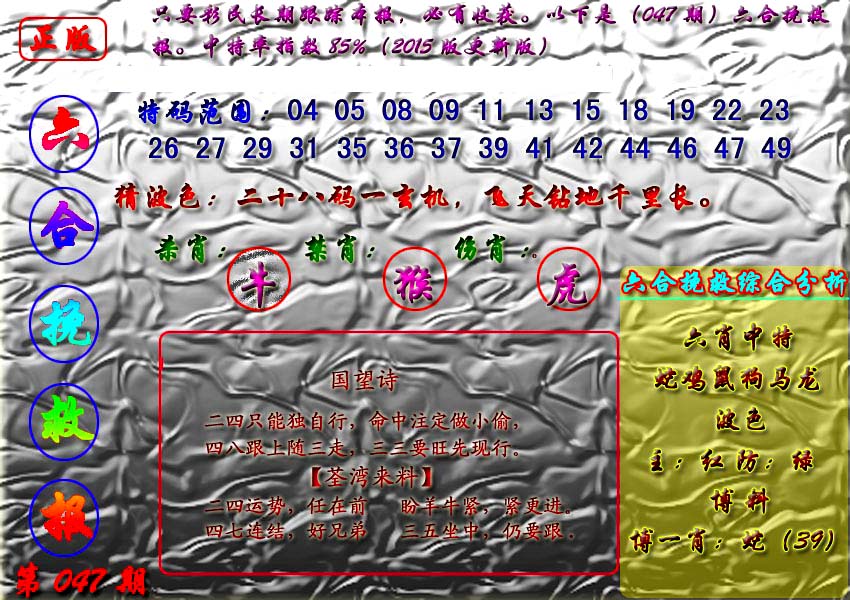 正版
只要彩民长期跟踪本报，必有收获。以下是（047期）六合挽救
报。中特率指数85%（2015版更新版）
六合挽救报
第047期
特码范围：04 05 08 09 11 13 15 18 19 22 23
26 27 29 31 35 36 37 39 41 42 44 46 47 49
猜波色：二十八码一玄机，飞天钻地千里长。
杀肖：牛 禁肖：猴 伤肖：虎。
国望诗
二四只能独自行，命中注定做小偷，
四八跟上随三走，三三要旺先现行。
【荃湾来料】
二四运势，任在前 盼羊牛紧，紧更进。
四七连结，好兄弟 三五坐中，仍要跟.
六合挽救综合分析
六肖中特
蛇鸡鼠狗马龙
波色
主：红防：绿
博料
博一肖：蛇（39）